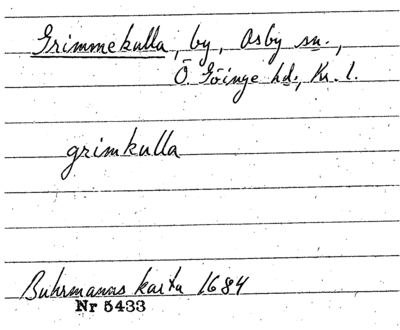 Grimmekulla, by, Osby sn.,
Ö. Göinge hd., Kr. l.
grimkulla
Buhrmanns karta 1684
Nr 5433